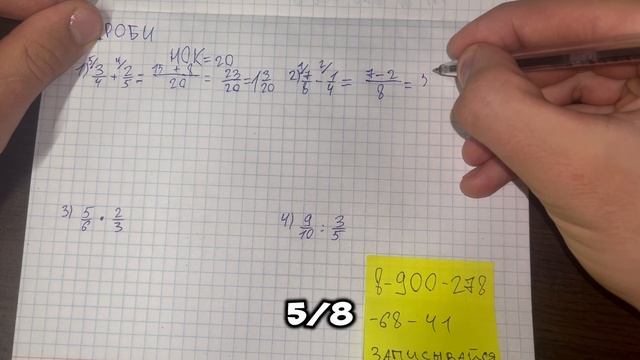 РОБИ
НОК=20
1) 5/ 3/4 + 4/ 2/5 = 15+8/20 = 23/20 = 1 3/20 2) 1/ 7/8 - 2/ 1/4 = 7-2/8 =
3) 5/6 · 2/3 4) 9/10 : 3/5
8-900-278
-68-41
ЗАПИСЫВАЙСЯ
5/8